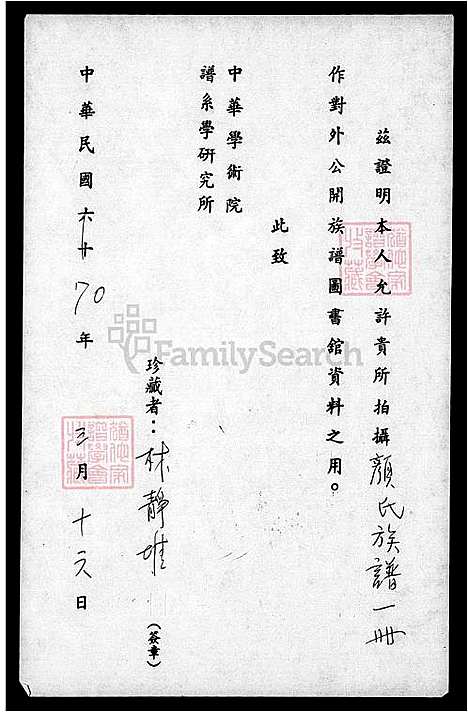 茲證明本人允許貴所拍攝顏氏族譜一冊
作對外公開族譜圖書館資料之用。
此致
中華學術院
譜系學研究所
珍藏者：林靜堆（簽章）
中華民國六十70年三月十六日
FamilySearch